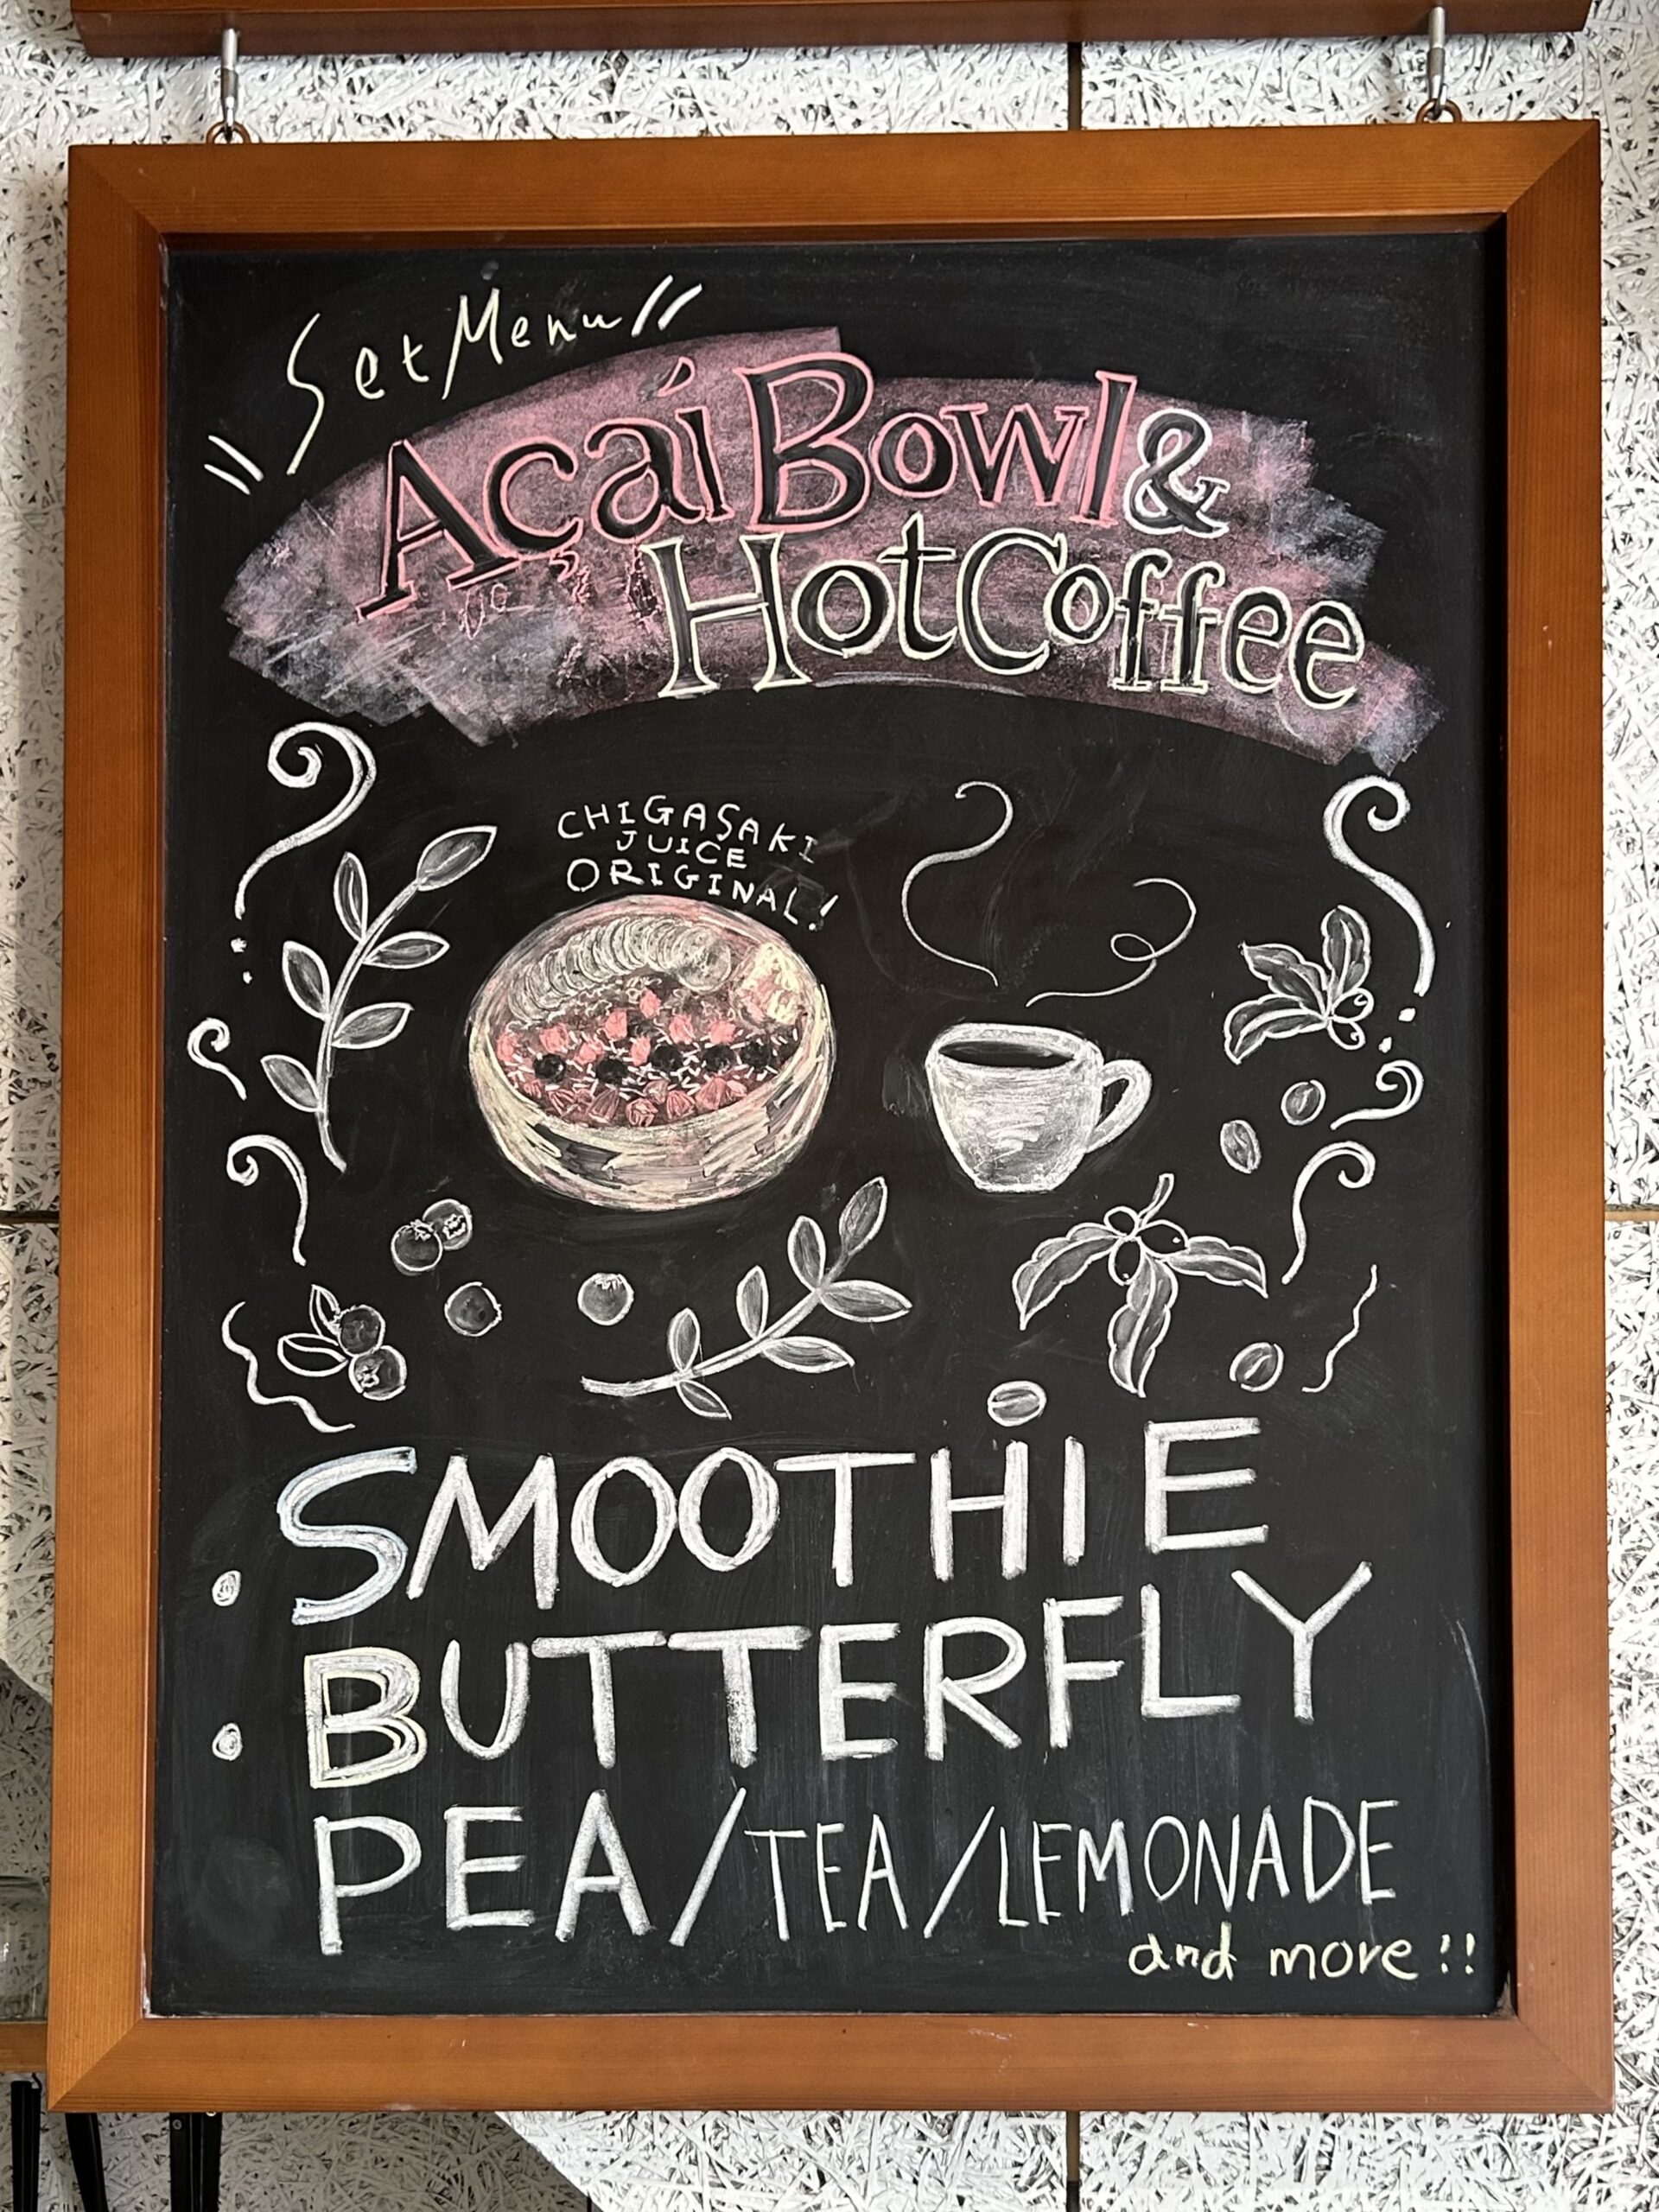 Set Menu
Acaí Bowl &
Hot Coffee
CHIGASAKI
JUICE
ORIGINAL!
• SMOOTHIE
• BUTTERFLY
PEA/TEA/LEMONADE
and more!!